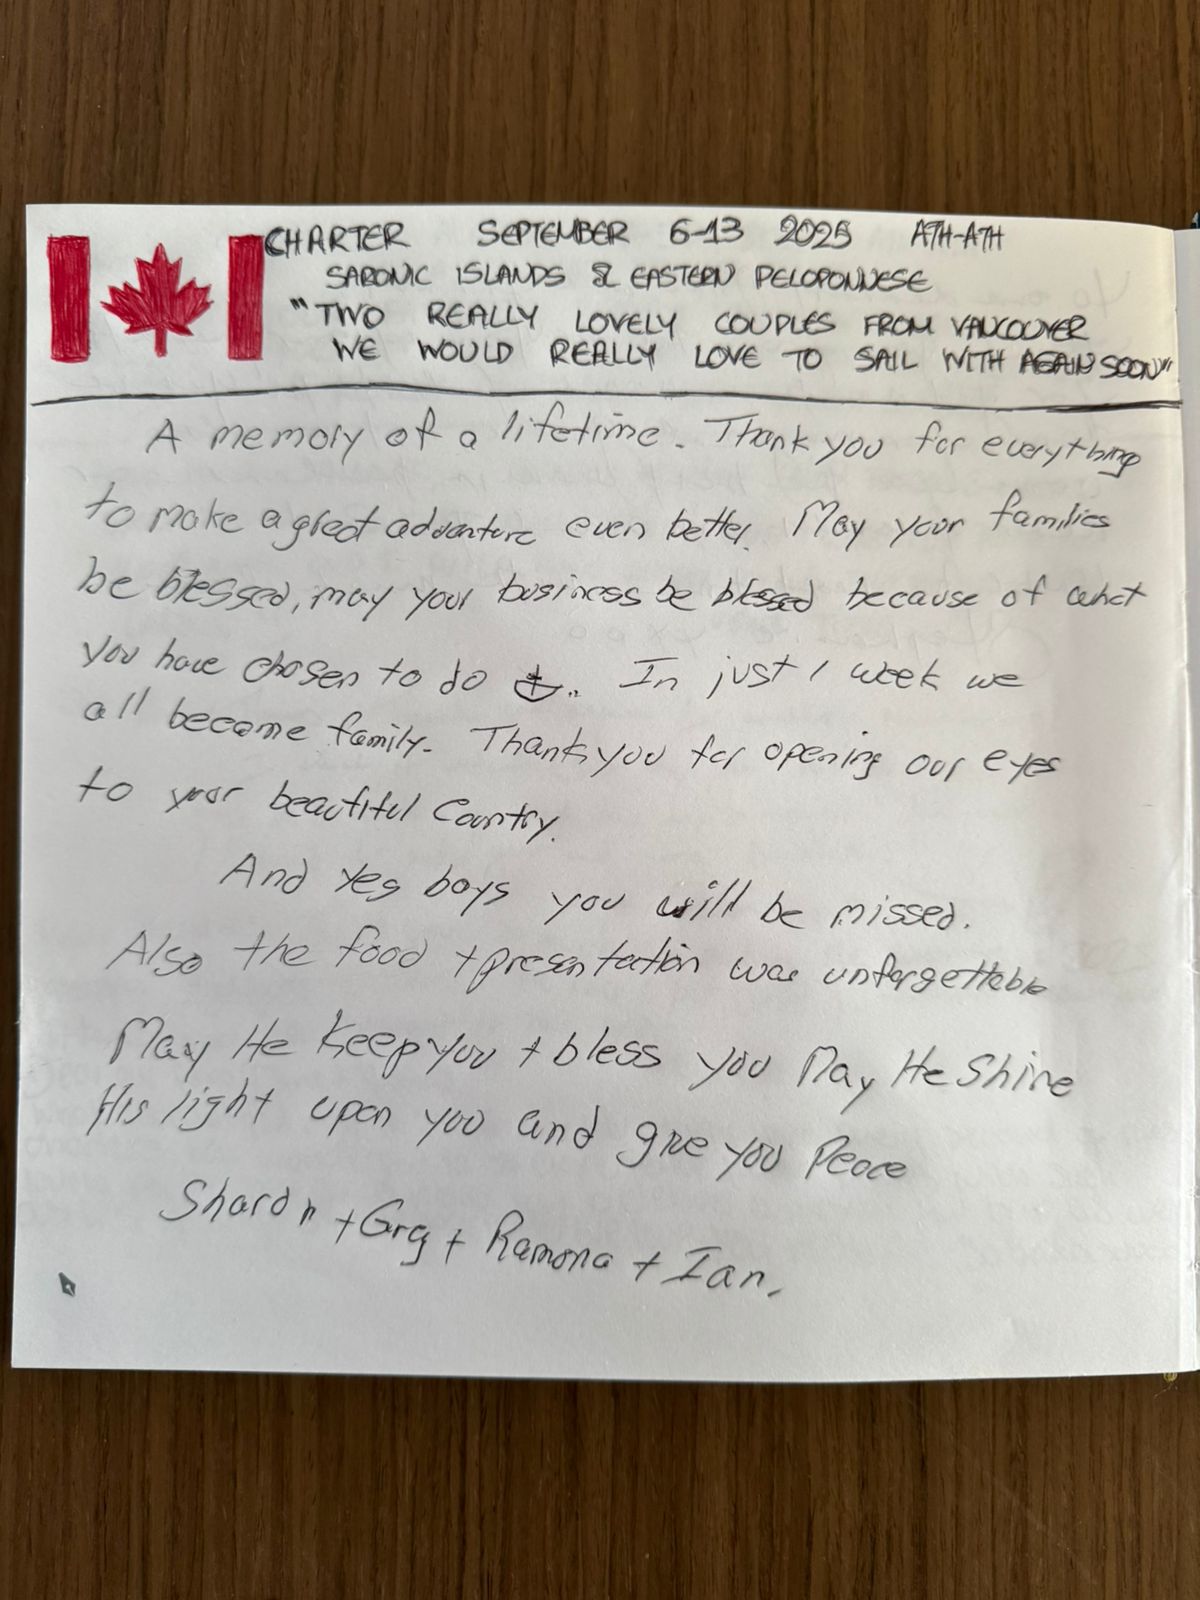 CHARTER SEPTEMBER 6-13 2025 ATH-ATH
SARONIC ISLANDS & EASTERN PELOPONNESE
"TWO REALLY LOVELY COUPLES FROM VANCOUVER
WE WOULD REALLY LOVE TO SAIL WITH AGAIN SOON"
A memory of a lifetime. Thank you for everything
to make a great adventure even better. May your families
be blessed, may your business be blessed because of what
you have chosen to do ⚓.. In just 1 week we
all became family. Thank you for opening our eyes
to your beautiful Country.
And yes boys you will be missed.
Also the food + presentation was unforgettable
May He Keep you + bless you May He Shine
His light upon you and give you Peace
Sharon + Grg + Ramona + Ian.